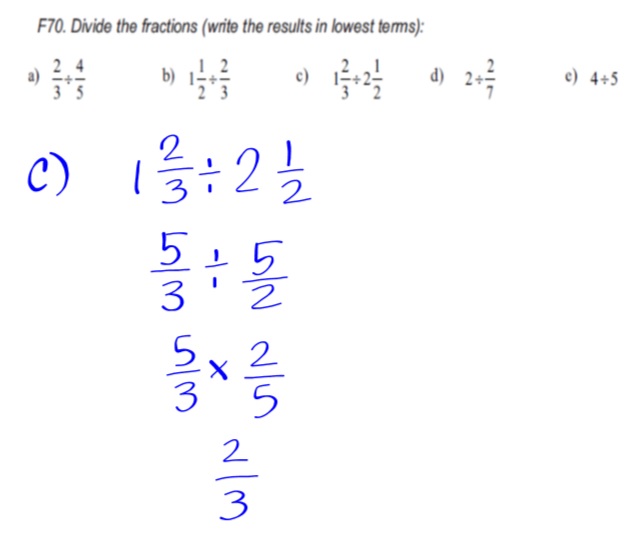 F70. Divide the fractions (write the results in lowest terms):
a) 2/3 ÷ 4/5 b) 1 1/2 ÷ 2/3 c) 1 2/3 ÷ 2 1/2 d) 2 ÷ 2/7 e) 4 ÷ 5
C) 1 2/3 ÷ 2 1/2
5/3 ÷ 5/2
5/3 × 2/5
2/3